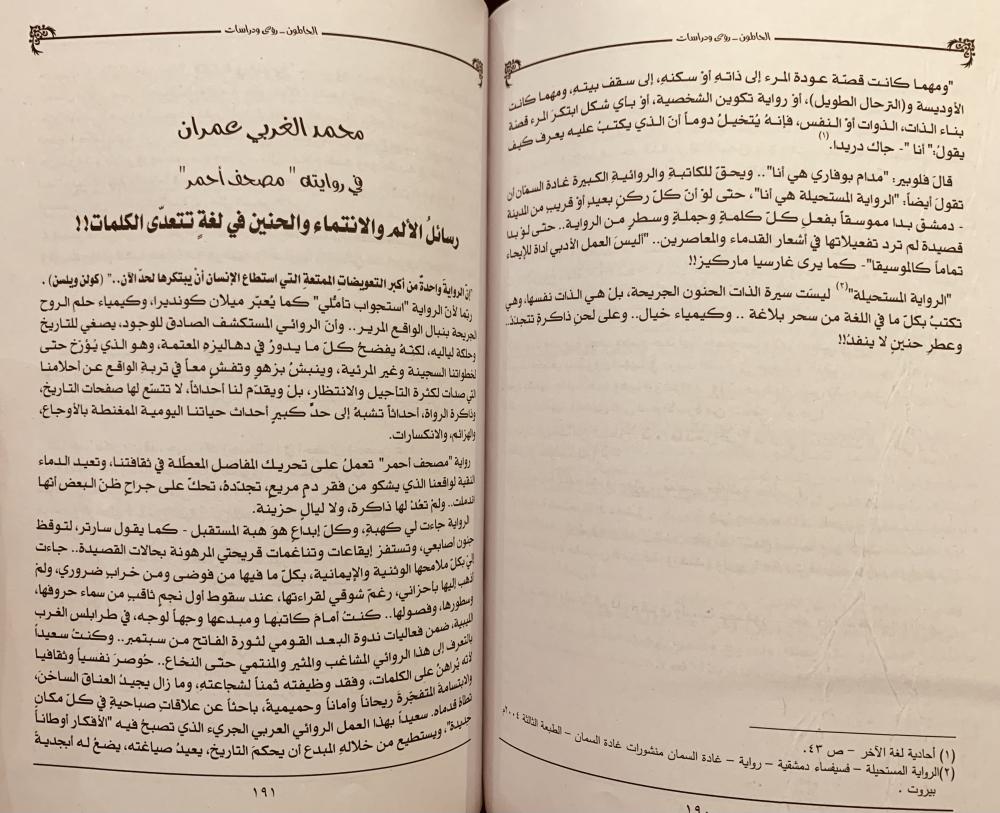 الحالمون ــ رؤى ودراسات
"ومهما كانت قصّة عودة المرء إلى ذاتهِ أوْ سكنهِ، إلى سقف بيتهِ، ومهما كانت
الأوديسة و(الترحال الطويل)، أوْ رواية تكوين الشخصية، أوْ بأي شكل ابتكرَ المرء قصة
بناء الذات، الذوات أوْ النفس، فإنهُ يُتخيلُ دوماً أنّ الذي يكتبُ عليه يعرف كيف
يقولُ:" أنا "- جاك دريدا.(١)
قالَ فلوبير: "مدام بوفاري هي أنا".. ويحقّ للكاتبةِ والروائيةِ الكبيرة غادة السمّان أن
تقولَ أيضاً: "الرواية المستحيلة هي أنا"، حتى لوْ أنّ كلّ ركنٍ بعيدٍ أوْ قريبٍ من المدينة
- دمشق بدا مموسقاً بفعلِ كلّ كلمةٍ وجملةٍ وسطرٍ من الرواية.. حتى لو بدا
قصيدة لم ترد تفعيلاتها في أشعار القدماء والمعاصرين.. "أليسَ العمل الأدبي أداة للإيحاء
تماماً كالموسيقا"- كما يرى غارسيا ماركيز!!
"الرواية المستحيلة"(٢) ليسَت سيرة الذات الحنون الجريحة، بلْ هي الذات نفسها، وهي
تكتبُ بكلّ ما في اللغة من سحر بلاغة .. وكيمياء خيال.. وعلى لحنِ ذاكرةٍ تتجدّد..
وعطرِ حنينٍ لا ينفدُ!!
(١) أحادية لغة الآخر – ص ٤٣.
(٢)الرواية المستحيلة – فسيفساء دمشقية – رواية – غادة السمان منشورات غادة السمان – الطبعة الثالثة ٢٠٠٤م
بيروت .
١٩٠
الحالمون ــ رؤى ودراسات
محمد الغربي عمران
في روايته " مصحف أحمر"
رسائلُ الألم والانتماء والحنين في لغةٍ تتعدّى الكلمات!!
"إنّ الرواية واحدةٌ من أكبر التعويضاتِ الممتعةِ التي استطاع الإنسان أنْ يبتكرها لحدّ الآن.." (كولن ويلسن) .
ربّما لأنّ الرواية "استجواب تأمّلي" كما يُعبّر ميلان كونديرا، وكيمياء حلم الروح
الجريحة بنبال الواقع المرير.. وأنّ الروائي المستكشف الصادق للوجود، يصغي للتاريخ
وحلكة لياليه، لكنّهُ يفضحُ كلّ ما يدورُ في دهاليزهِ المعتمة، وهو الذي يُؤرّخ حتى
لخطواتنا السجينة وغير المرئية، وينبشُ بزهوٍ وتفشٍ معاً في تربةِ الواقع عن أحلامنا
التي صدأت لكثرة التأجيل والانتظار، بلْ ويقدّم لنا أحداثاً، لا تتسّع لها صفحات التاريخ،
وذاكرة الرواة، أحداثاً تشبهُ إلى حدٍّ كبيرٍ أحداث حياتنا اليومية الممغنطة بالأوجاع،
والهزائم، والانكسارات.
رواية "مصحف أحمر" تعملُ على تحريك المفاصل المعطّلة في ثقافتنا، وتعيد الدماء
النقية لواقعنا الذي يشكو من فقر دمٍ مريعٍ، تجدّدهُ، تحكّ على جراحٍ ظنّ البعض أنّها
اندملت.. ولمْ تعُدْ لها ذاكرة، ولا ليالٍ حزينة.
الرواية جاءت لي كهبةٍ، وكلّ إبداعٍ هوَ هبة المستقبل - كما يقول سارتر، لتوقظ
جنون أصابعي، وتستفز إيقاعات وتناغمات قريحتي المرهونة بحالات القصيدة.. جاءت
إليّ بكلّ ملامحها الوثنية والإيمانية، بكلّ ما فيها من فوضى ومن خرابٍ ضروري، ولمْ
أذهب إليها بأحزاني، رغمَ شوقي لقراءتها، عند سقوط أول نجمٍ ثاقبٍ من سماء حروفها،
وسطورها، وفصولها.. كنتُ أمامَ كاتبها ومبدعها وجهاً لوجه، في طرابلس الغرب
الليبية، ضمن فعاليات ندوة البعد القومي لثورة الفاتح من سبتمبر.. وكنتُ سعيداً
بالتعرف إلى هذا الروائي المشاغب والمثير والمنتمي حتّى النخاع.. حُوصرَ نفسياً وثقافيا
لأنّه يُراهنُ على الكلمات، وفقد وظيفته ثمناً لشجاعتهِ، وما زال يجيدُ العناق الساخن،
والابتسامة المتفجّرة ريحاناً وأماناً وحميميةً، باحثاً عن علاقاتٍ صباحيةٍ في كلّ مكانٍ
تطأهُ قدماه. سعيداً بهذا العمل الروائي العربي الجريء، الذي تصبحُ فيه "الأفكار أوطاناً
جديدة"، ويستطيع من خلالهِ المبدع أن يحكمَ التاريخ، يعيدُ صياغته، يضعُ له أبجديةً
١٩١